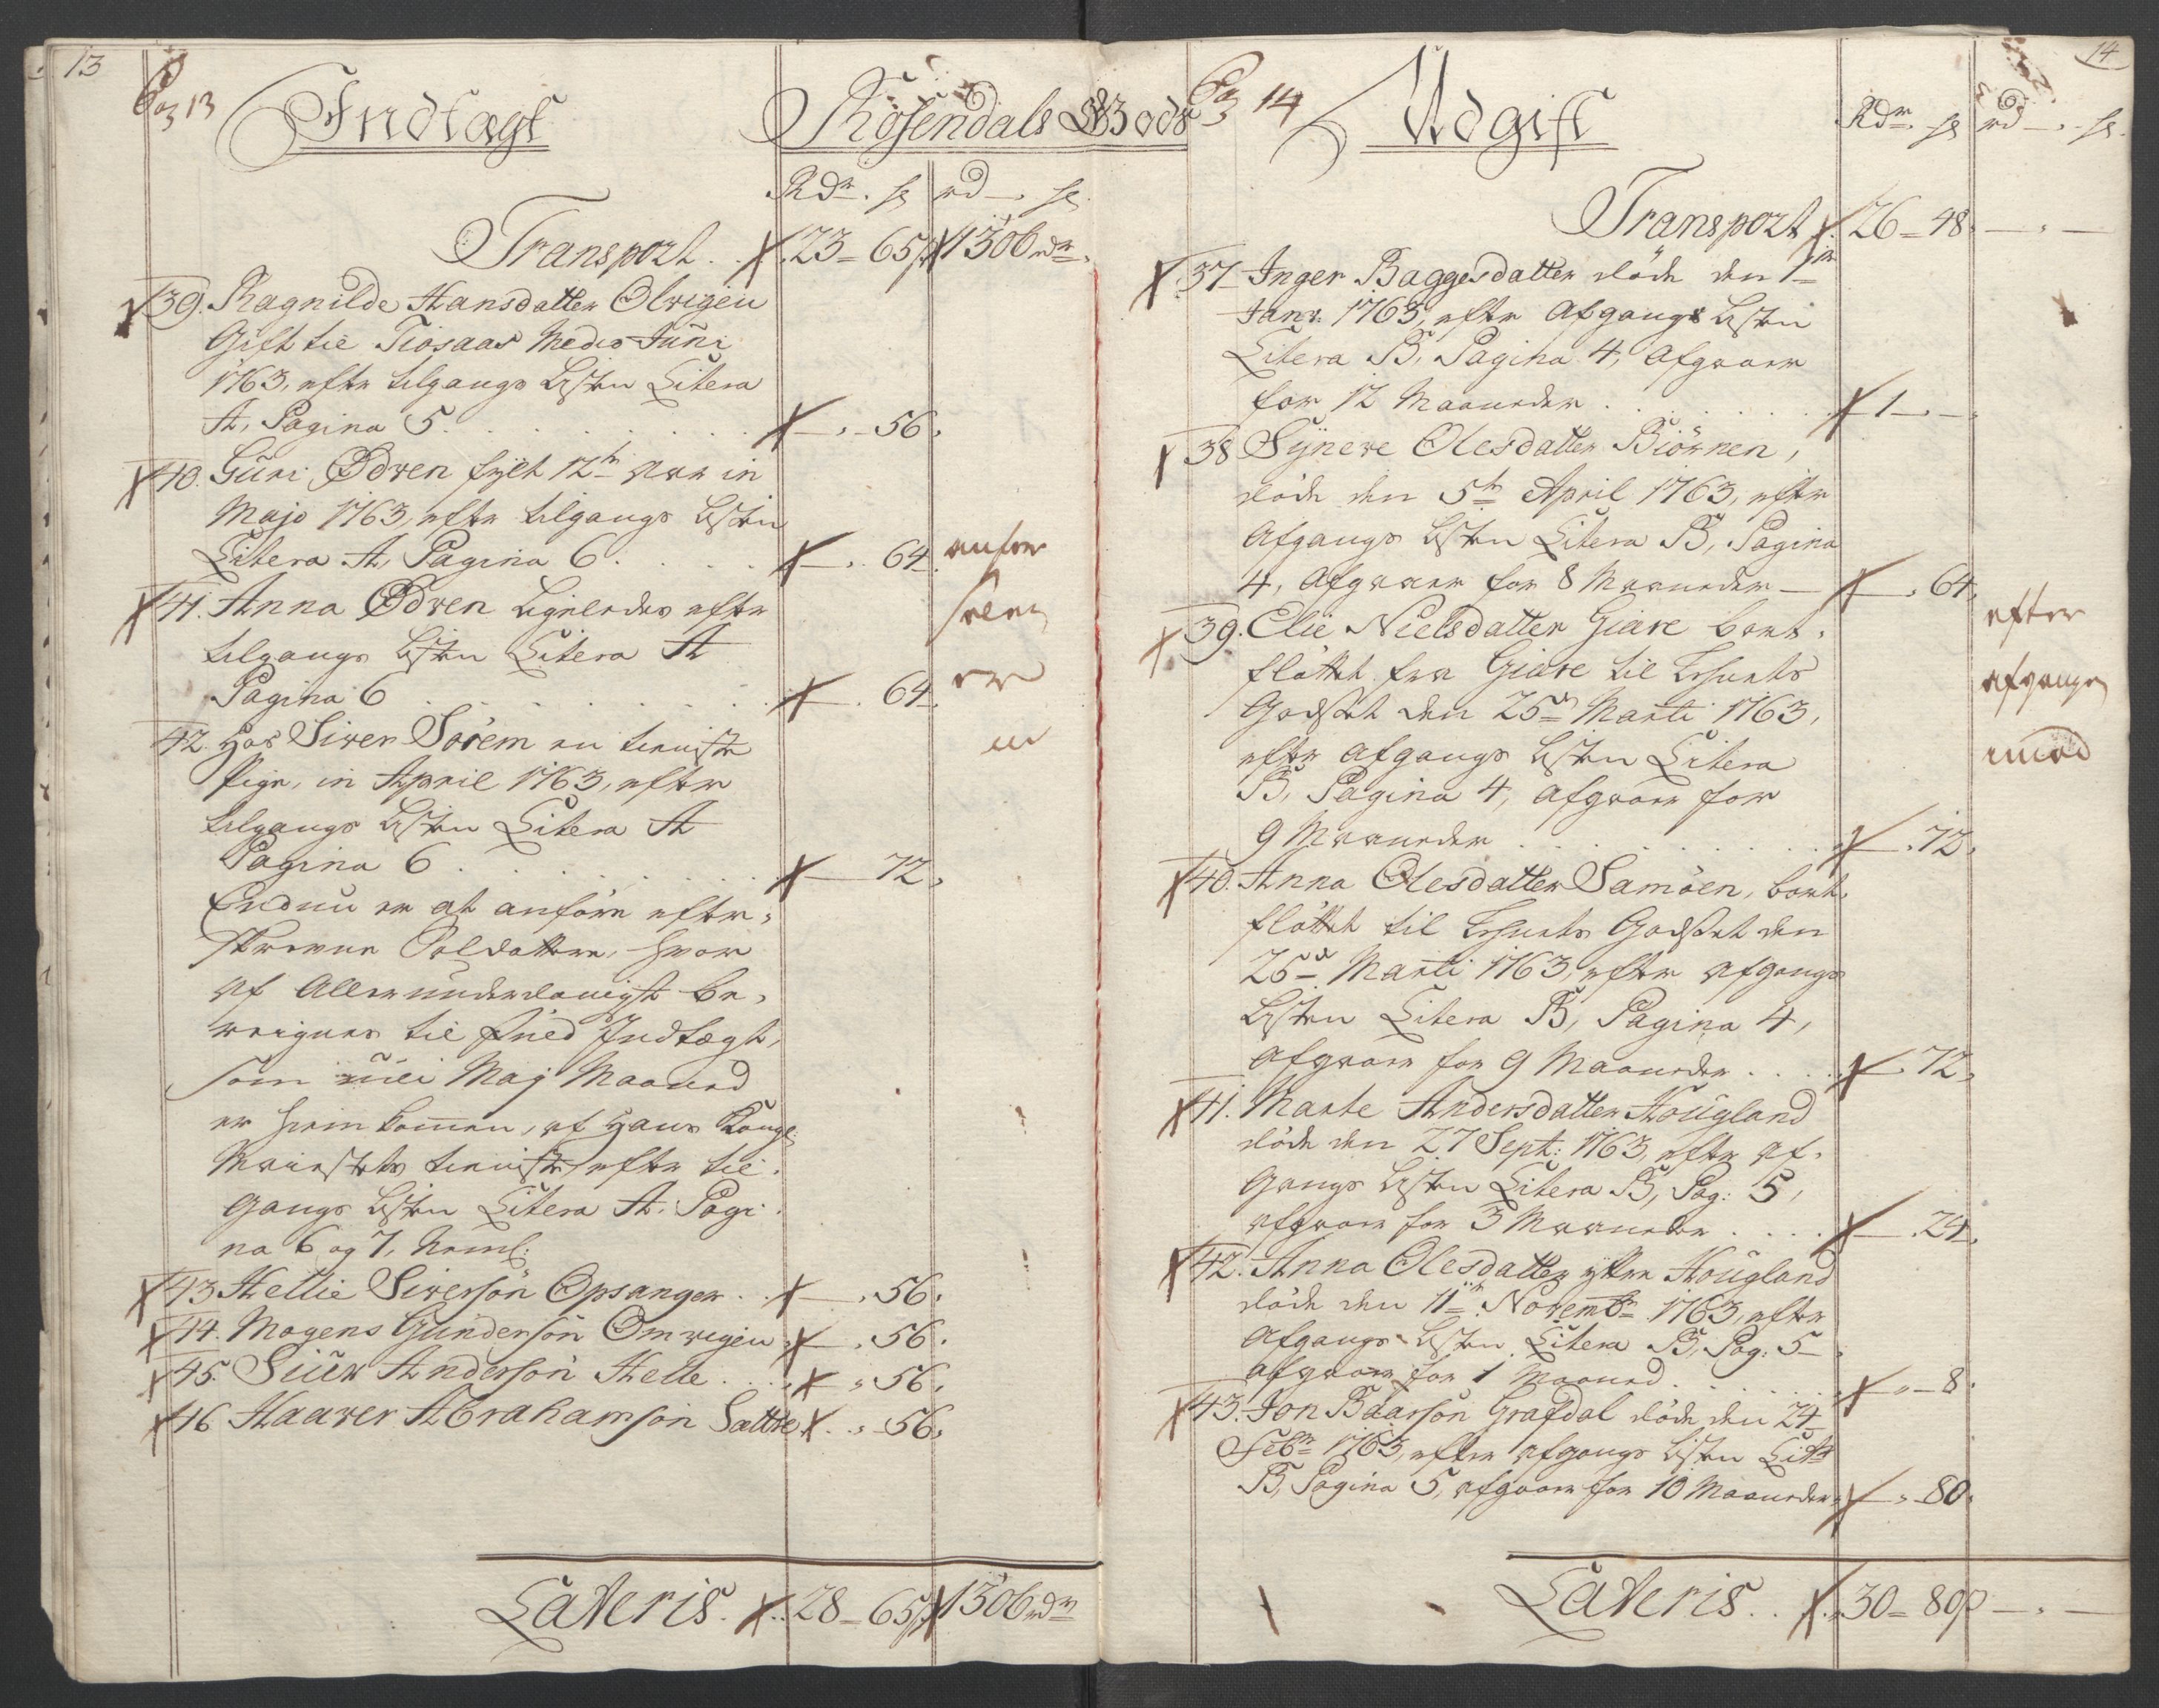 13
Pag 13
Indtægt
Rosendals Gods
Rdr. ß rd — . ß.
Transport . . 23 = 65 ß 1306 rdr
39. Ragnilde Hansdatter Olvigen
Gift til Tiosaas Medio Juni
1763, efter tilgangs Listen Litera
A, Pagina 5 . . . — . - 56.
40. Guri Ødven fylt 12te Aar in
Majo 1763, efter tilgangs Listen
Litera A, Pagina 6 . . . — . 64.
41. Anna Ødven Ligeledes efter
tilgangs Listen Litera A
Pagina 6 . . . — . 64.
42. Hos Siver Sørem en tieniste
Pige, in April 1763, efter
tilgangs Listen Litera A
Pagina 6 . . . — 72.
Endnu er at anføre efter-
skrevne Soldatter, hvor
af Allerunderdanigst be-
reignes til Indtægt,
som Maj Maaned
er hiemkommen, af Hans Kongl:
Maiestets tieniste efter til-
gangs Listen Litera A. Pagi-
na 6 og 7, Neml:
43 Hellie Siversøn Opsanger . . — . 56.
44. Mogens Gundersøn Omvigen — . 56.
45. Siur Andersøn Helle . . . — „ 56.
46 Haaver Abrahamsøn Sættre . . „ 56.
Lateris . . . 28 = 65 ß 1306 rdr
14
Pag 14
Udgift
Rdr. ß rd — . ß.
Transport . 26 = 48. — „ —
37 Inger Baggesdatter døde den 1te
Janr. 1763, efter Afgangs Listen
Litera B, Pagina 4, Afgaaer
for 12 Maaneder . . . 1 — . —
38 Synneve Olesdatter Biørnen,
døde den 5te April 1763, efter
Afgangs Listen Litera B, Pagina
4, Afgaaer for 8 Maaneder — — . 64.
39. Elie Nielsdatter Giære bort-
fløttet fra Giære til
Godset den 25de Marti 1763,
efter afgangs Listen Litera
B, Pagina 4, afgaaer for
9 Maaneder . . . — . 72.
efter
afgangen
40. Anna Olesdatter Samøen, bort-
fløttet til Godset den
25de Marti 1763, efter afgangs
Listen Litera B, Pagina 4,
afgaaer for 9 Maaneder . . . — . 72.
41. Marte Andersdatter Hougland
døde den 27 Sept: 1763, efter Af-
gangs Listen Litera B, Pag: 5,
afgaaer for 3 Maaneder . . . — . 24.
42. Anna Olesdatter ytre Hougland
døde den 11te Novembr 1763, efter
Afgangs Listen Litera B, Pag: 5
afgaaer for 1 Maaned . . . „ — 8.
43. Jon Baarsøn Grafdal døde den 24
Febr 1763, efter afgangs Listen Litr
B, Pagina 5, afgaaer for 10 Maaneder — „ - 80.
Lateris . . . 30 = 80 ß — „ —